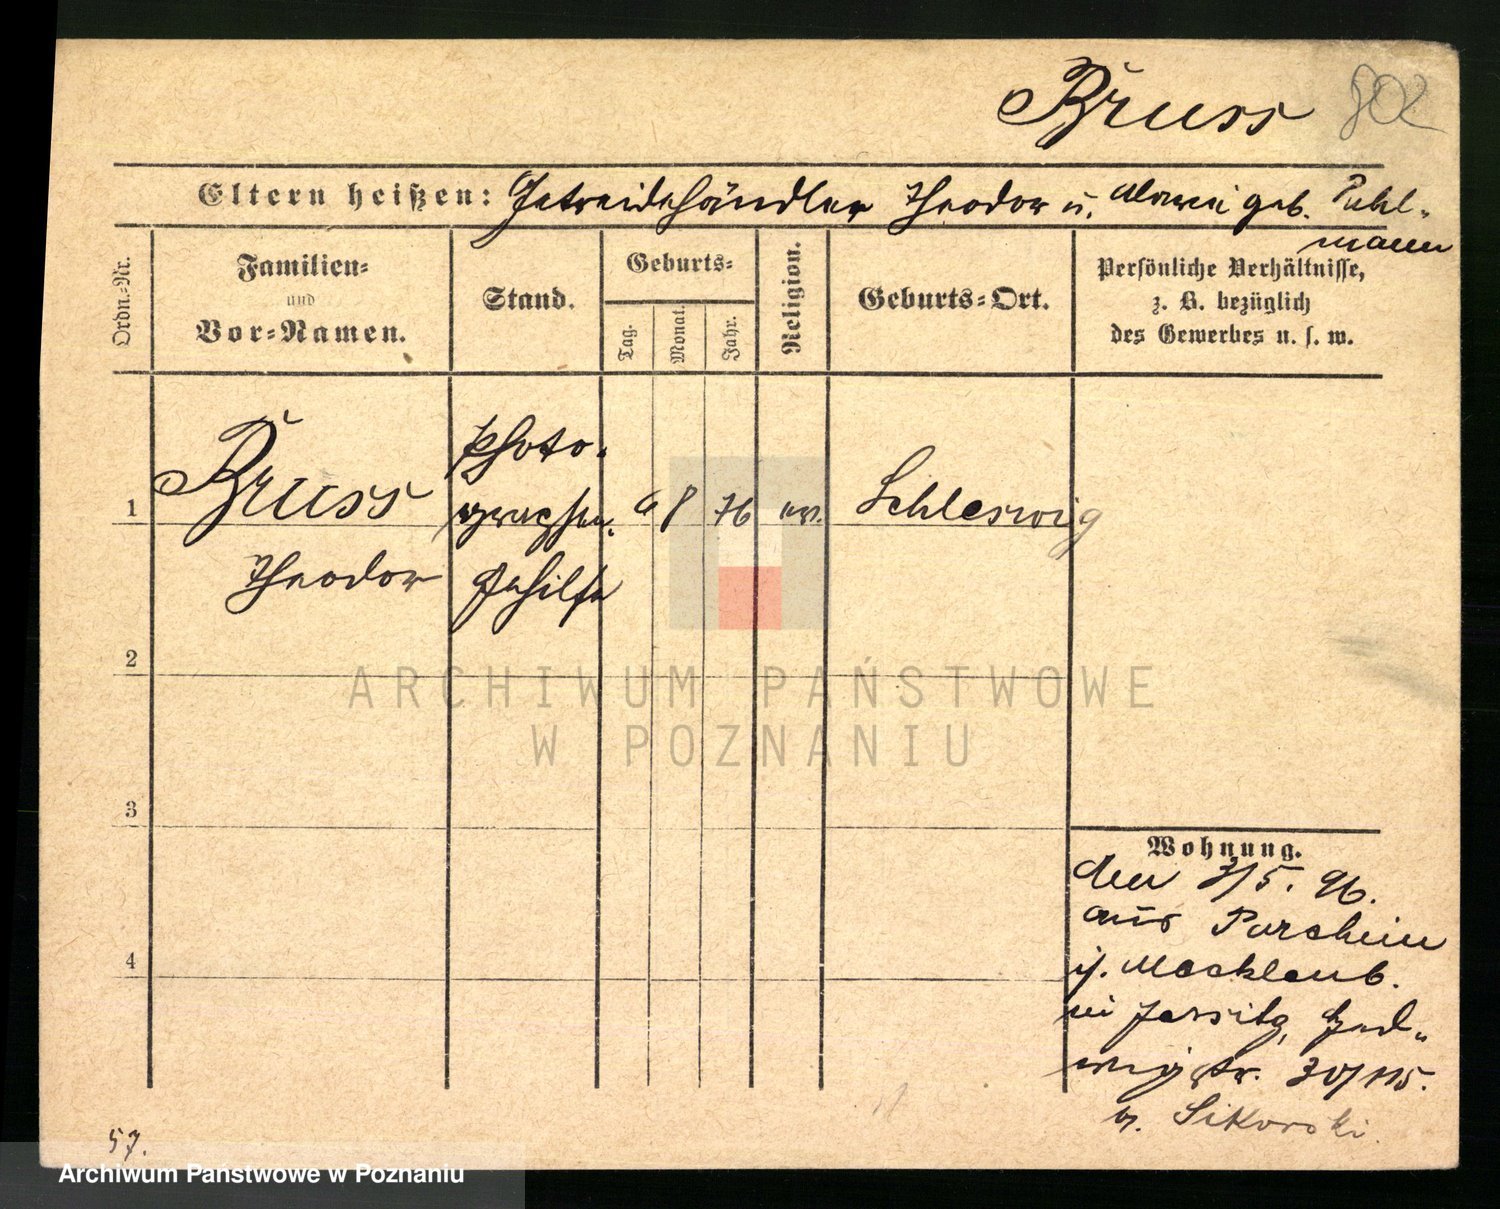 Bruss 802
Eltern heißen: Getreidehändler Theodor u. Maria geb. Puhl-
mann
Ordn.-Nr.
Familien-
und
Vor-Namen.
Stand.
Geburts-
Tag.
Monat.
Jahr.
Religion.
Geburts-Ort.
Persönliche Verhältnisse,
z. B. bezüglich
des Gewerbes u. s. w.
1
Bruss
Theodor
Photo-
graphen-
Gehilfe
6 8 76 ev. Schleswig
2
3
4
Wohnung.
den 7/5. 96.
aus Parchim
i/. Mecklenb.
in Jersitz, Hed-
wigstr. 30/115.
b. Sikorski.
57.
ARCHIWUM PAŃSTWOWE
W POZNANIU
Archiwum Państwowe w Poznaniu